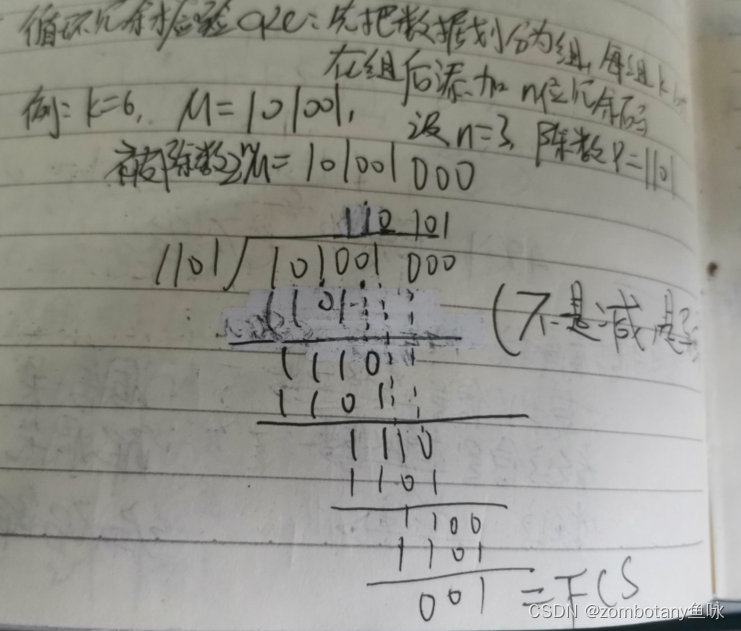 循环冗余检验CRC:先把数据划分为组,每组k
在组后添加n位冗余码
例:k=6, M=101001, 设n=3, 除数P=1101
被除数2ⁿM=101001000
110 101
1101 101001 000
1101
1110
1101
1110
1101
1100
1101
001 =FCS
(不是减,是
CSDN @zombotany鱼咏